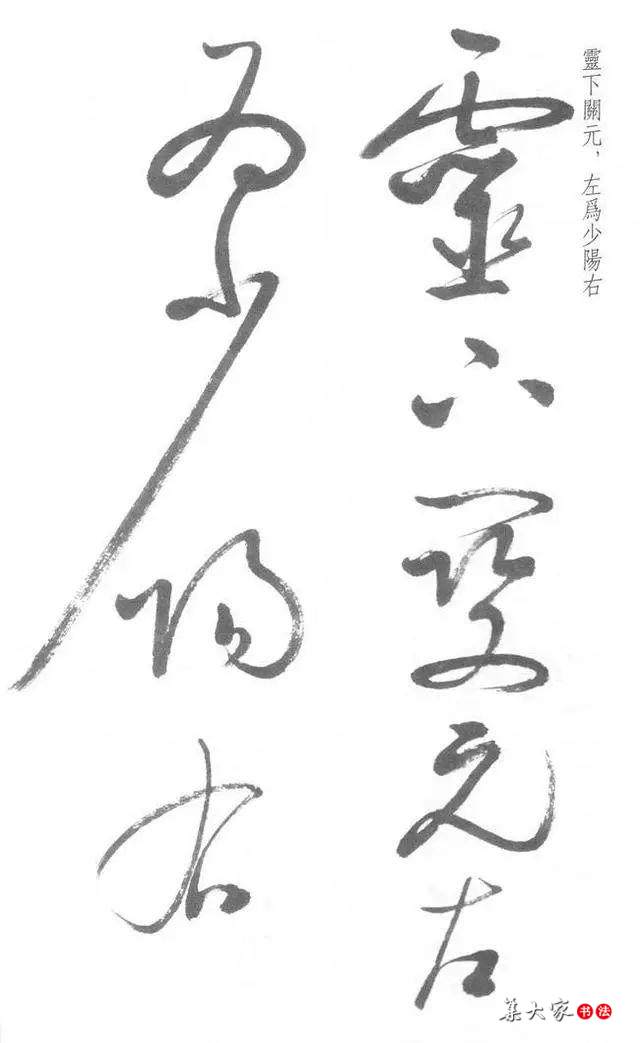 靈下關元，左爲少陽右
靈下關元左
爲少陽右
集大家书法